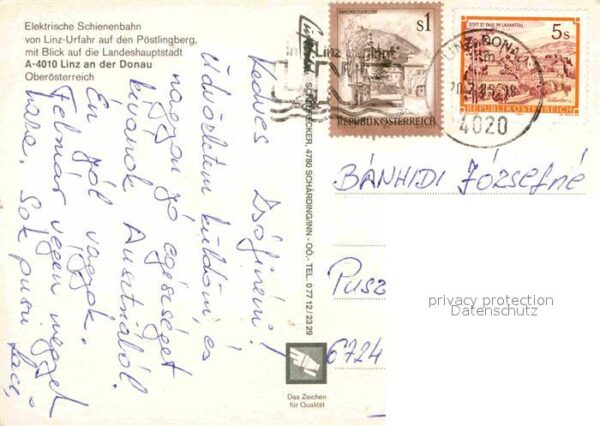 Elektrische Schienenbahn
von Linz-Urfahr auf den Pöstlingberg,
mit Blick auf die Landeshauptstadt
A-4010 Linz an der Donau
Oberösterreich
Kedves
Üdvözletem küldöm, és
nagyon jó egészséget
kívánok Ausztriából.
Én jól vagyok.
Február végén megyek
haza. Sok puszi
Laci
SCHÄRDING/INN - OÖ. - TEL. 0 77 12 / 23 29
Das Zeichen
für Qualität
s1
REPUBLIK ÖSTERREICH
STIFT ST. PAUL IM LAVANTTAL
5s
REPUBLIK ÖSTERREICH
in Linz
LINZ, DONAU
4020
BÁNHIDI Józsefné
Pusz
6724
privacy protection
Datenschutz